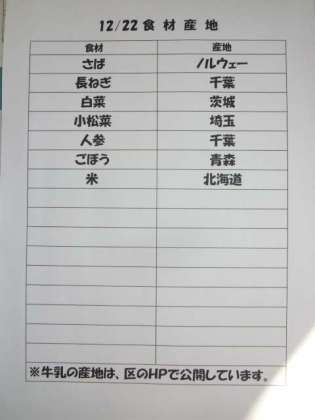 12/22食材産地
食材 産地
さば ノルウェー
長ねぎ 千葉
白菜 茨城
小松菜 埼玉
人参 千葉
ごぼう 青森
米 北海道
※牛乳の産地は、区のHPで公開しています。